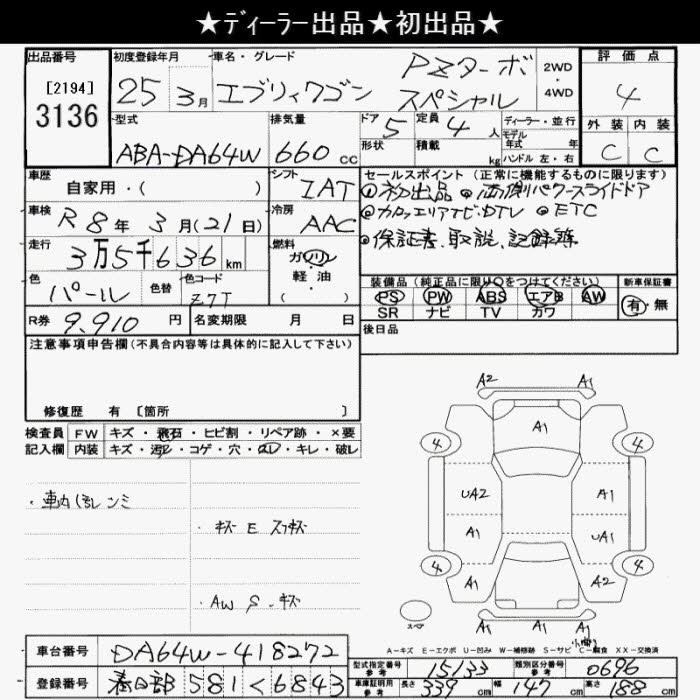 ★ディーラー出品★初出品★
出品番号 初度登録年月 車名・グレード 2WD・4WD 評価点
[2194]
3136
25 3月 エブリィワゴン PZターボスペシャル 4
型式 排気量 ドア 定員 ディーラー・並行 外装 内装
ABA-DA64W 660cc 5 4人 モデル年式 年 C C
形状 積載 kg ハンドル 左・右
車歴 シフト セールスポイント(正常に機能するものに限ります)
自家用・( ) IAT ◎初出品 ◎両側パワースライドドア
車検 冷房 ◎カロッツェリアナビ・DTV ◎ETC
R8年3月(21日) AAC ◎保証書、取説、記録簿
走行 燃料
3万5千636km ガソリン
軽・油
( )
色 色替 色コード 装備品(純正品に限り○をつけてください) 新車保証書
パール Z7T PS PW ABS エアB AW 有・無
SR ナビ TV カワ
R券 9,910円 名変期限 月 日 後日品
注意事項申告欄(不具合内容等は具体的に記入して下さい)
修復歴 有 [箇所 ]
検査員 FW キズ・飛石・ヒビ割・リペア跡・×要
記入欄 内装 キズ・汚レ・コゲ・穴・スレ・キレ・破レ
A2 A1
A1
4 4
UA2 A1
A1 UA1
4 4
A1 A2
A1 A1
・車内
・キズ E スリキズ
・AW S・キズ
スペア
A-キズ E-エクボ U-凹み W-補修跡 S-サビ C-腐食 XX-交換済
車台番号 DA64W-418272
登録番号 春日部 581 く 6843
型式指定番号 参考 15133 類別区分番号 参考 0696
車庫証明用 参考 長さ 339cm 幅 147cm 高さ 188cm